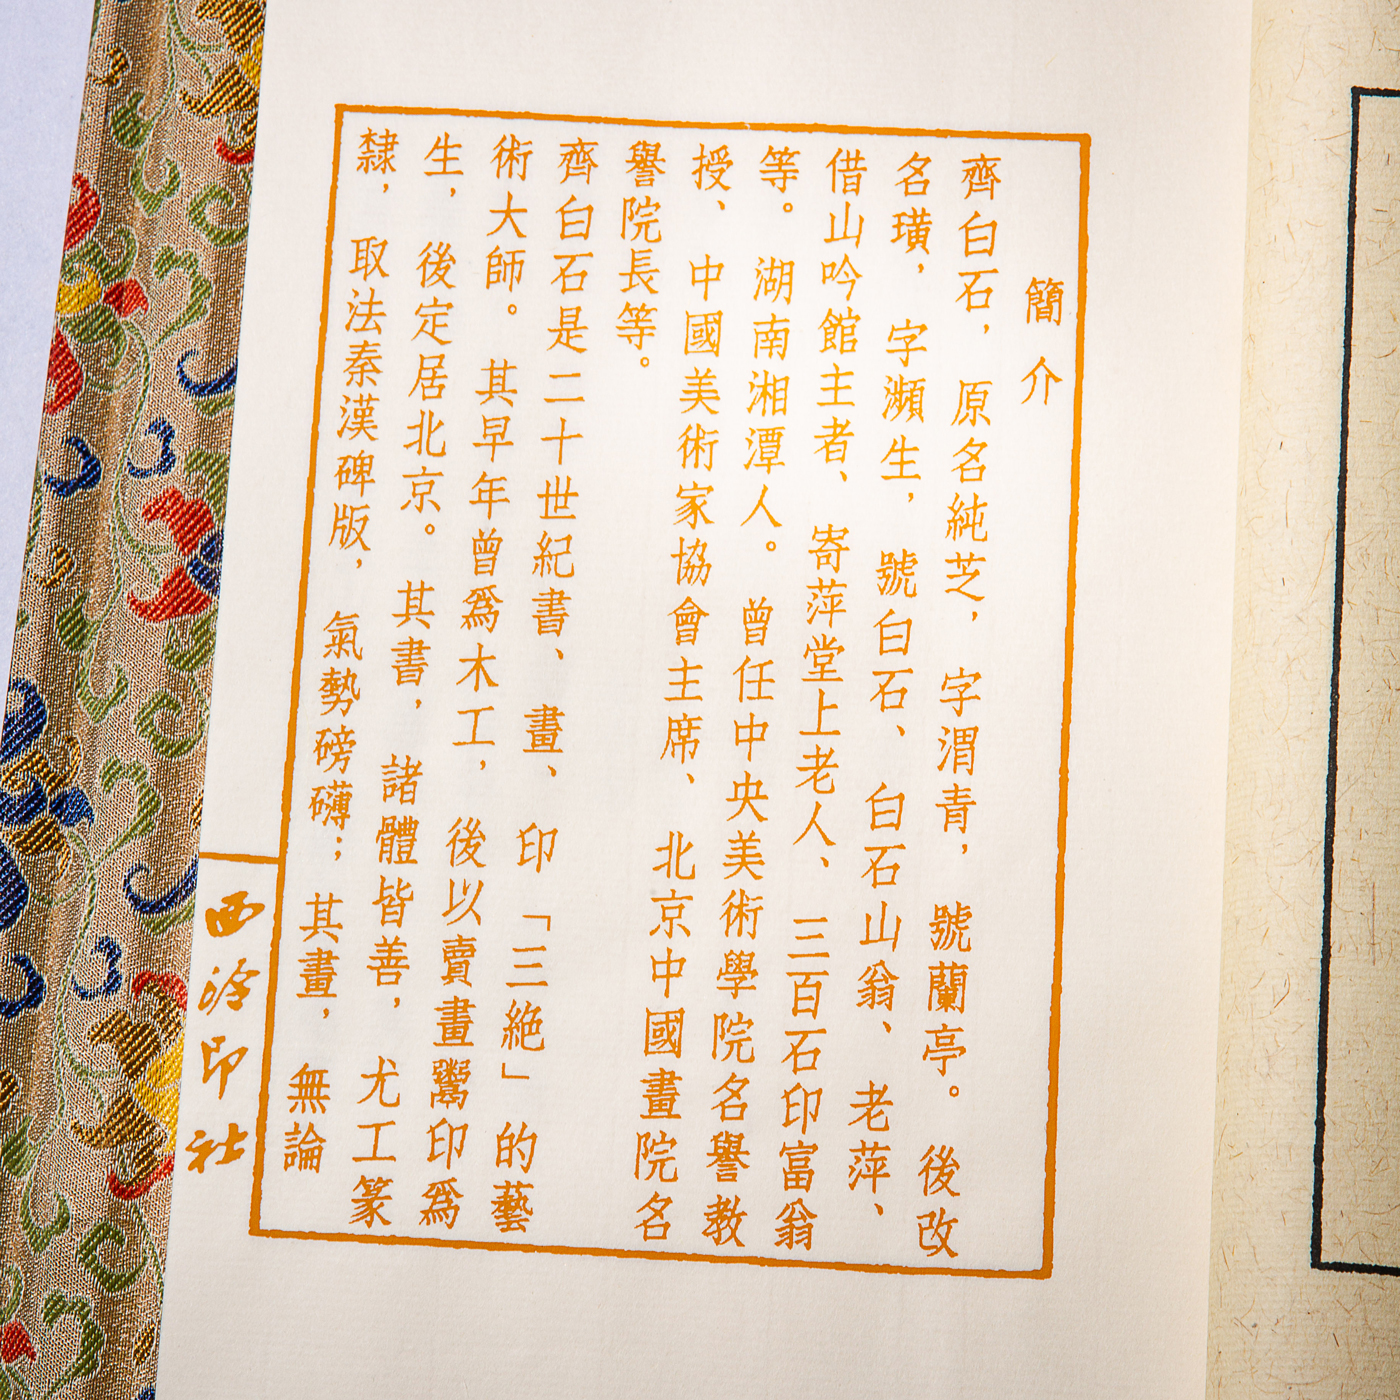 簡介
齊白石，原名純芝，字渭青，號蘭亭。後改
名璜，字瀕生，號白石、白石山翁、老萍、
借山吟館主者、寄萍堂上老人、三百石印富翁
等。湖南湘潭人。曾任中央美術學院名譽教
授、中國美術家協會主席、北京中國畫院名
譽院長等。
齊白石是二十世紀書、畫、印「三絕」的藝
術大師。其早年曾爲木工，後以賣畫鬻印爲
生，後定居北京。其書，諸體皆善，尤工篆
隸，取法秦漢碑版，氣勢磅礴；其畫，無論
西泠印社